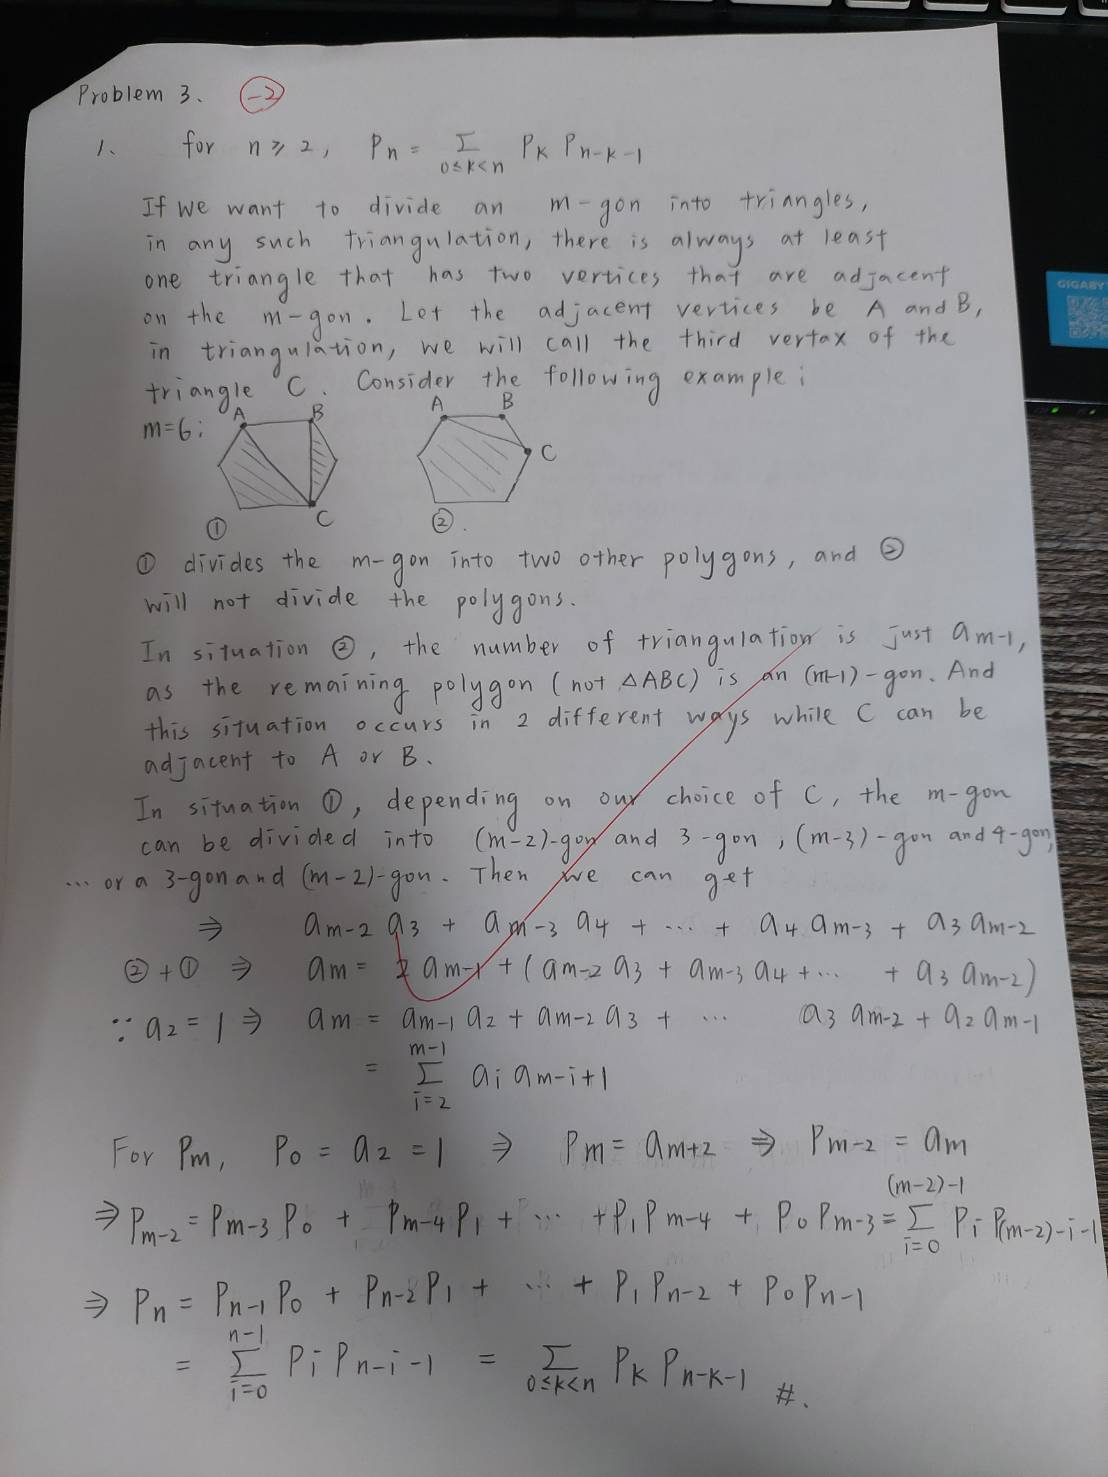 Problem 3. -2
1. for n ≥ 2, Pn = Σ 0≤k<n Pk Pn-k-1
If we want to divide an m-gon into triangles,
in any such triangulation, there is always at least
one triangle that has two vertices that are adjacent
on the m-gon. Let the adjacent vertices be A and B,
in triangulation, we will call the third vertax of the
triangle C. Consider the following example:
m=6:
A B
C
①
A B
C
②.
① divides the m-gon into two other polygons, and ②
will not divide the polygons.
In situation ②, the number of triangulation is just am-1,
as the remaining polygon (not △ABC) is an (m-1)-gon. And
this situation occurs in 2 different ways while C can be
adjacent to A or B.
In situation ①, depending on our choice of C, the m-gon
can be divided into (m-2)-gon and 3-gon, (m-3)-gon and 4-gon,
... or a 3-gon and (m-2)-gon. Then we can get
⇒ am-2 a3 + am-3 a4 + ... + a4 am-3 + a3 am-2
②+① ⇒ am = 2 am-1 + (am-2 a3 + am-3 a4 + ... + a3 am-2)
∵ a2 = 1 ⇒ am = am-1 a2 + am-2 a3 + ... a3 am-2 + a2 am-1
= Σ i=2 m-1 ai am-i+1
For Pm, P0 = a2 = 1 ⇒ Pm = am+2 ⇒ Pm-2 = am
⇒ Pm-2 = Pm-3 P0 + Pm-4 P1 + ... + P1 Pm-4 + P0 Pm-3 = Σ i=0 (m-2)-1 Pi P(m-2)-i-1
⇒ Pn = Pn-1 P0 + Pn-2 P1 + ... + P1 Pn-2 + P0 Pn-1
= Σ i=0 n-1 Pi Pn-i-1 = Σ 0≤k<n Pk Pn-k-1 #.